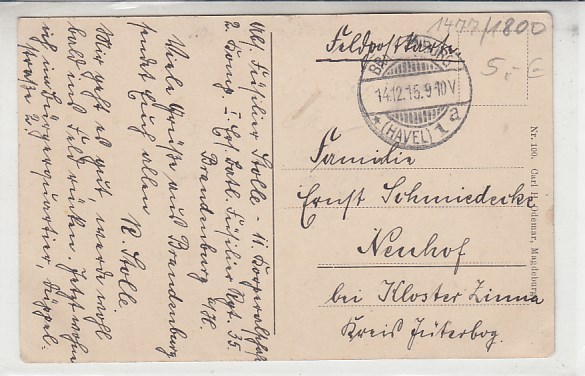 1477/1800
5,- €
Feldpostkarte.
BRANDENBURG
14.12.15.9-10V
* (HAVEL) 1a
Familie
Ernst Schmiedecke
Neuhof
bei Kloster Zinna
Kreis Jüterbog.
Nr. 100. Carl H. Odemar, Magdeburg
Abs. Füsilier Stolle - 11. Korporalschaft
2. Komp. I. Ers. Batl. Füsilier Rgt. 35.
Brandenburg a/H.
Viele Grüße aus Brandenburg
sendet Euch allen
R. Stolle.
Mir geht es gut, werde wohl
bald ins Feld rücken. Jetzt wohne
ich im Bürgerquartier,
straße 2.